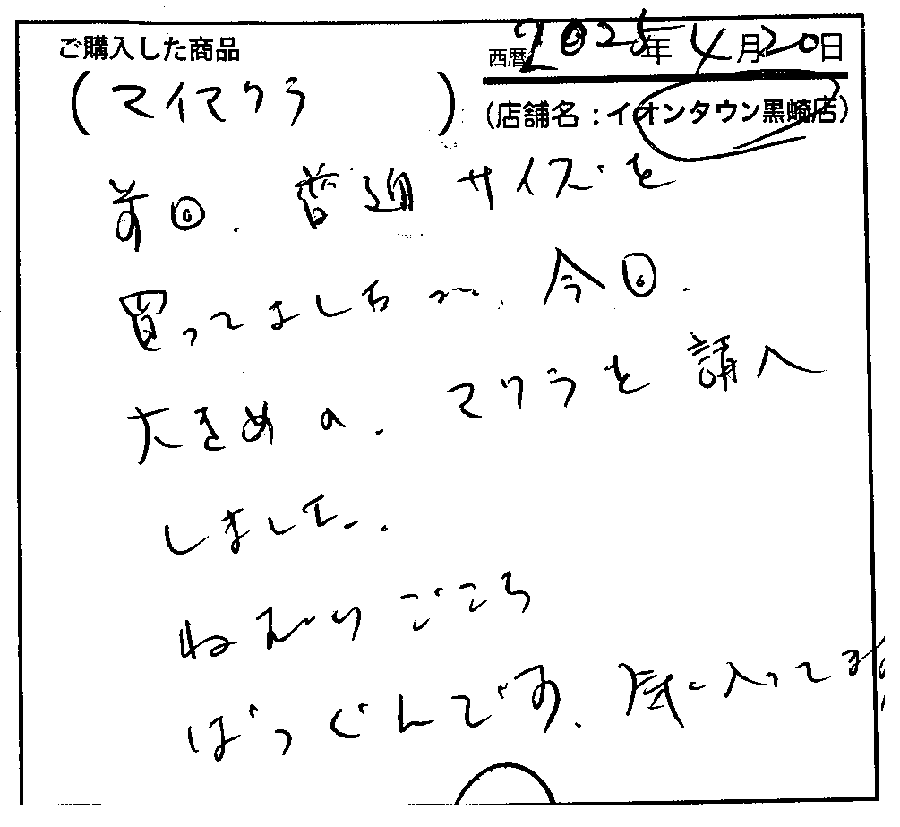 ご購入した商品
西暦2025年4月20日
(マイマクラ)
(店舗名：イオンタウン黒崎店)
前回、普通サイズを
買ってましたが、今回、
大きめの、マクラを購入
しました。
ねむりごこち
ばつぐんです、気に入ってます